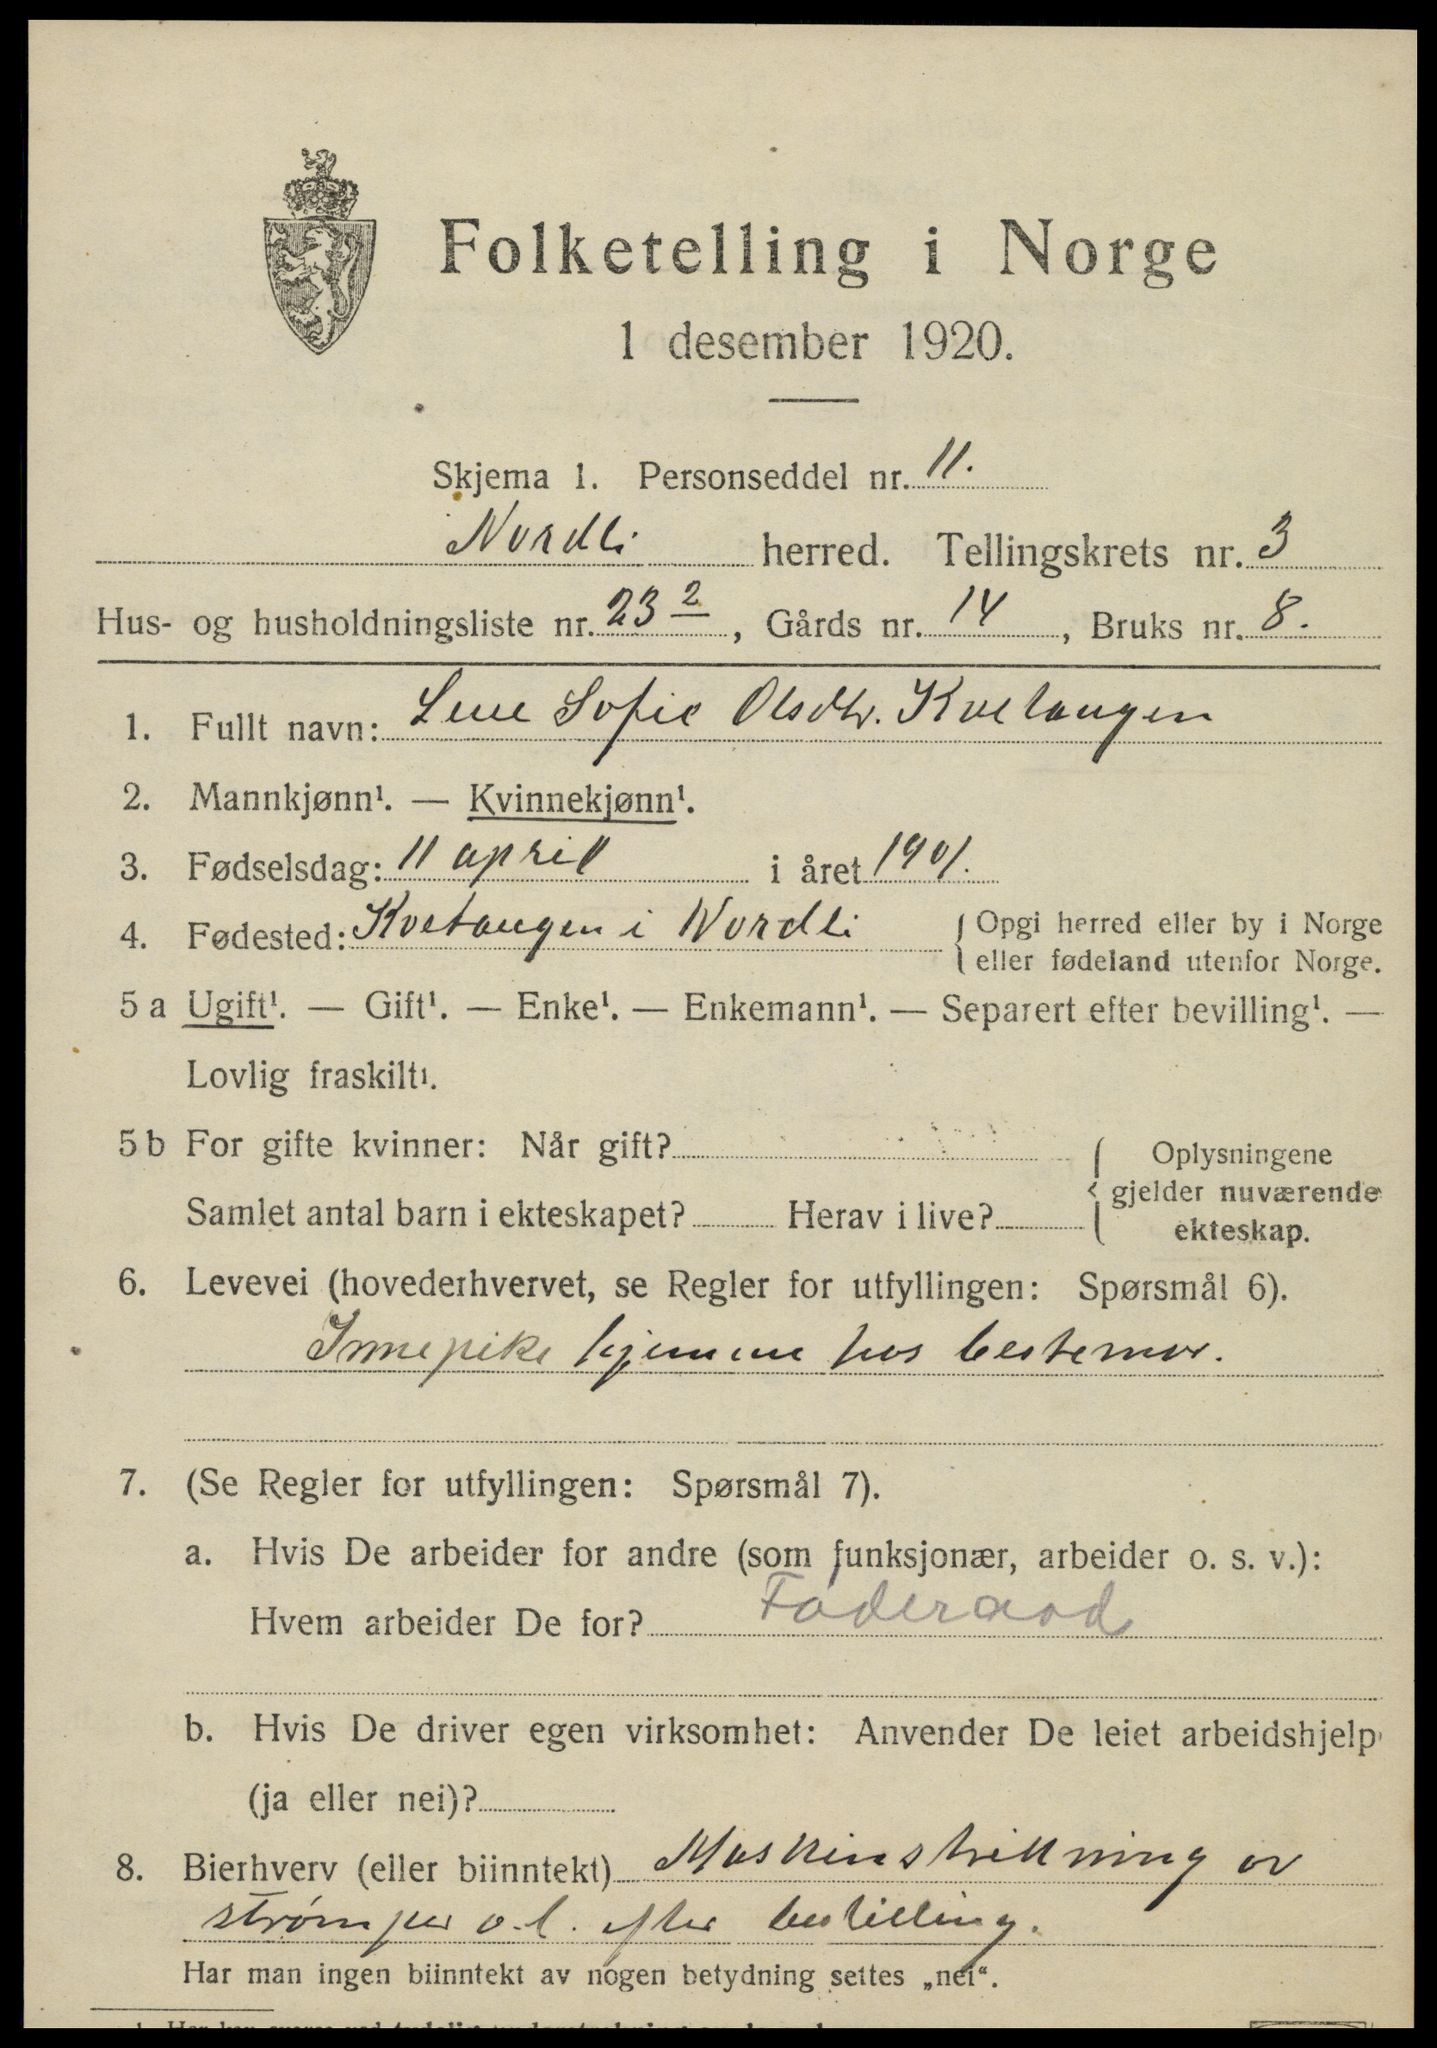 Folketelling i Norge
1 desember 1920.
Skjema 1. Personseddel nr. 11.
Nordli herred. Tellingskrets nr. 3
Hus- og husholdningsliste nr. 23 2, Gårds nr. 14, Bruks nr. 8.
1. Fullt navn: Lene Sofie Olsdtr. Kvetangen
2. Mannkjønn¹. — Kvinnekjønn¹.
3. Fødselsdag: 11 april i året 1901.
4. Fødested: Kvetangen i Nordli { Opgi herred eller by i Norge
eller fødeland utenfor Norge.
5 a Ugift¹. — Gift¹. — Enke¹. — Enkemann¹. — Separert efter bevilling¹. —
Lovlig fraskilt¹.
5 b For gifte kvinner: Når gift?
Samlet antal barn i ekteskapet? Herav i live?
{ Oplysningene
gjelder nuværende
ekteskap.
6. Levevei (hovederhvervet, se Regler for utfyllingen: Spørsmål 6).
Innepike hjemme hos bestemor.
7. (Se Regler for utfyllingen: Spørsmål 7).
a. Hvis De arbeider for andre (som funksjonær, arbeider o. s. v.):
Hvem arbeider De for? Føderaad
b. Hvis De driver egen virksomhet: Anvender De leiet arbeidshjelp
(ja eller nei)?
8. Bierhverv (eller biinntekt) Maskinstrikkning av
strømper o.l. efter bestilling.
Har man ingen biinntekt av nogen betydning settes „nei“.